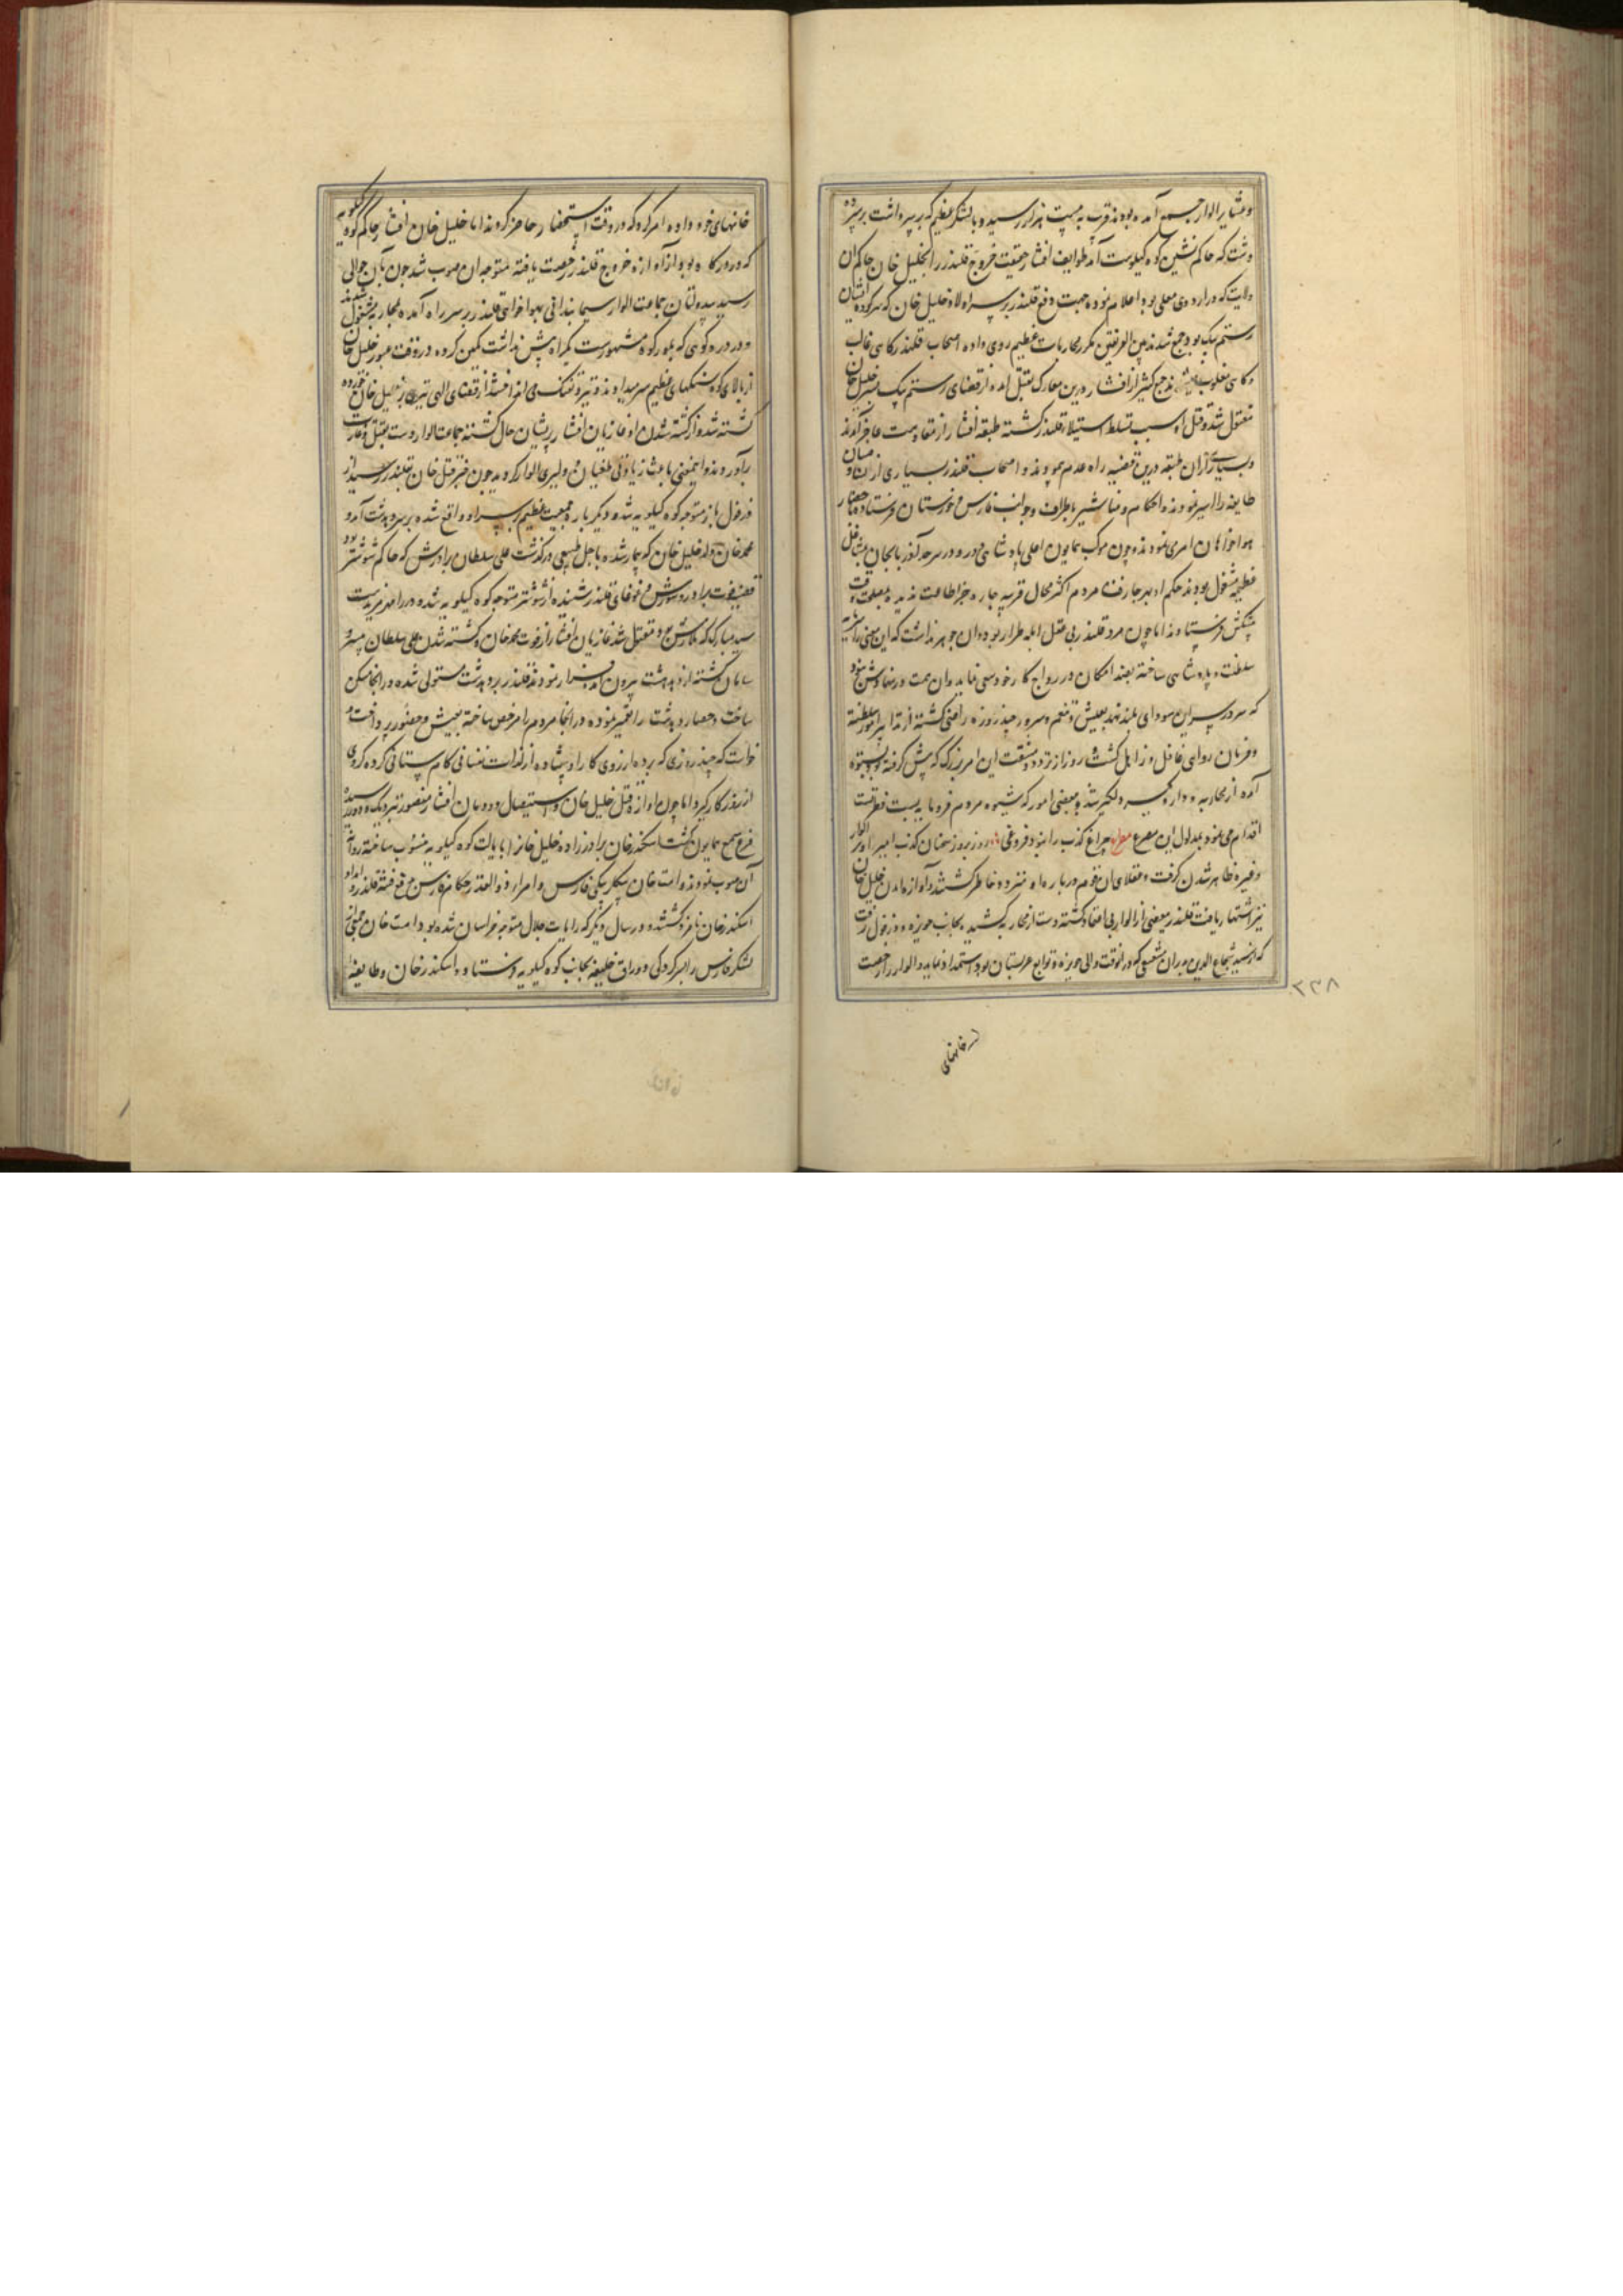 و عشایر الوار جمع آمده بودند قریب به بیست هزار رسید و با لشکر عظیم که بر سر داشت بر سر ده
دشت که حاکم نشین کوه کیلویه است آمد طوایف افشار حقیقت خروج قلندر را بخلیل خان حاکم آن
ولایت که در اردوی معلی بود اعلام نموده جهت دفع قلندر بر سر اولاد خلیل خان که سرکرده ایشان
رستم بیک بود جمع شدند بین الفریقین مکرر محاربات عظیم روی داده اصحاب قلندر گاهی غالب
و گاهی مغلوب میشدند جمع کثیر از افشار درین معارک بقتل آمده از قضای رستم بیک پسر خلیل خان
مقتول شد و قتل او سبب تسلط و استیلاء قلندر گشته طبقه افشار از مقاومت عاجز آمدند
و بسیاری از آن طبقه درین قضیه راه عدم پیمودند و اصحاب قلندر بسیاری از نساء و صبیان
طایفه را اسیر نمودند و احکام و مناشیر باطراف و جوانب فارس و خوزستان فرستاده احضار
هواخواهان امری نمودند و چون موکب همایون اعلی پادشاهی دور و در سرحد آذربایجان بمشاغل
عظیمه مشغول بودند حکم او بهر جا رفت مردم اکثر محال قریبه چاره جز اطاعت ندیده بمصلحت وقت
پیشکش فرستادند اما چون مرد قلندر بی عقل ابله طرار بود و آن جوهر نداشت که این معنی را مایه
سلطنت و پادشاهی ساخته بقدر امکان در رواج کار خود سعی نماید و آن همت در نهادش نبود
که سر در پی این سودای بلند نهد بعیش و تنعم و سرور چند روزه راضی گشته از تدابیر امور سلطنت
و فرمان روایی غافل و ذاهل گشت و روز از تردد و مشقت این امر بزرگ که پیش گرفته بود بستوه
آمده از محاربه و دار و گیر دلگیر شد و بعضی امور که شیوه مردم فرومایه پست فطرتست
اقدام می نمود بمدلول این مصرع مصراع چراغ کذب را نبود فروغی روز بروز سخنان کذب آمیز او بر الوار
و غیره ظاهر شدن گرفت و عقلای آن قوم درباره او متردد خاطر گشتند و آوازه آمدن خلیل خان
نیز اشتهار یافت قلندر بعضی از الوار بی اعتماد گشته دست از محاربه کشید بجانب حویزه و دزفول رفت
که از سید شجاع الدین بدران مشعشعی که در آنوقت والی حویزه و توابع عربستان بود استمداد نماید و الوار را رخصت
خانهای
۲۳۸
خانهای خود داده امر کرد که در وقت استحضار حاضر گردند اما خلیل خان افشار حاکم کوه کیلویه
که در درگاه بود از آوازه خروج قلندر رخصت یافته متوجه آن صوب شد چون بآن حوالی
رسید سپه ولتان جماعت الوار سیما بندانی بهواخواهی قلندر بر سر راه آمده بمحاربه مشغول شدند
و در دره کوهی که بلور کوه مشهورست یکراه پیش نداشت کمین کرده در وقت عبور خلیل خان
از بالای کوه سنگهای عظیم سر میدادند و تیر و تفنگ می انداختند از قضای الهی تیری بر خلیل خان خورده
کشته شد و از کشته شدن او غازیان افشار پریشان حال گشتند جماعت الوار دست بقتل و غارت
برآوردند و اینمعنی باعث زیادتی طغیان و دلیری الوار گردید چون خبر قتل خان بقلندر رسید از
دزفول باز متوجه کوه کیلویه شد و دیگر باره جمعیت عظیم بر سر او واقع شده بر سر دهدشت آمد و
محمد خان ولد خلیل خان که بیمار شده باجل طبیعی درگذشت علی سلطان برادرش که حاکم شوشتر بود
قضیه فوت برادر و شورش و غوغای قلندر شنیده از شوشتر متوجه کوه کیلویه شد و در رامهرمز بدست
سید مبارک گرفتار شد و مقتول شد غازیان افشار از فوت محمد خان و کشته شدن علی سلطان بی سر و
سامان گشته از دهدشت بیرون آمده فرار نمودند قلندر بر دهدشت مستولی شده در آنجا مسکن
ساخت و حصار دهدشت را تعمیر نموده در آنجا مردم را مرخص ساخته بعیش و حضور پرداخت و
خواست که چند روزی که بر وفق آرزوی کار او بیفتاده از لذات نفسانی کام ستانی کرده گروی
از روزگار گیرد اما چون آوازه قتل خلیل خان و استیصال دودمان افشار مقصود نزدیک و دور رسید
بمسامع همایون گشت اسکندر خان برادرزاده خلیل خان را بایالت کوه کیلویه منسوب ساخته روانه
آن صوب نمودند و امت خان بیگلربیگی فارس و امراء ذوالقدر و حکام فارس بدفع فتنه قلندر و امداد
اسکندر خان نامزد گشتند و در سال دیگر که رایات جلال متوجه خراسان شده بود امت خان جمعی از
لشکر فارس را بسرکردگی دوراق خلیفه بجانب کوه کیلویه فرستاد و اسکندر خان و طایفه